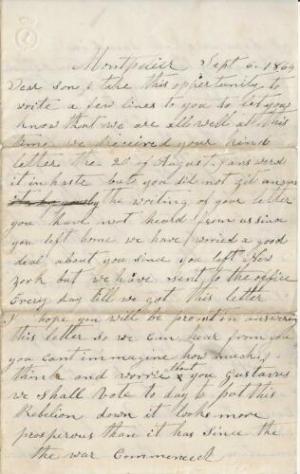 Montpelier Sept 6. 1864
Dear son I take this oppertunity to
write a few lines to you to let you
know that we are all well at this
time we received your kind
letter the 20 of August answerd
it in haste but you did not git
the writing of your letter
you have not heard from us since
you left home we have woried a good
deal about you since you left New
york but we have sent to the office
Every day till we got this letter
I hope you will be promt in answering
this letter so we can hear from you
you cant immagine how much I
think and worrie you
we shall vote to day to put this
Rebelion down it looks more
prosperous than it has since the
the war Commenced